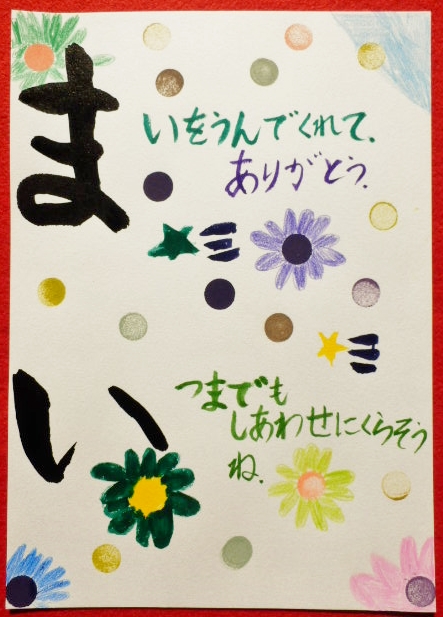 ま
いをうんでくれて、
ありがとう。
い
つまでも
しあわせにくらそう
ね。